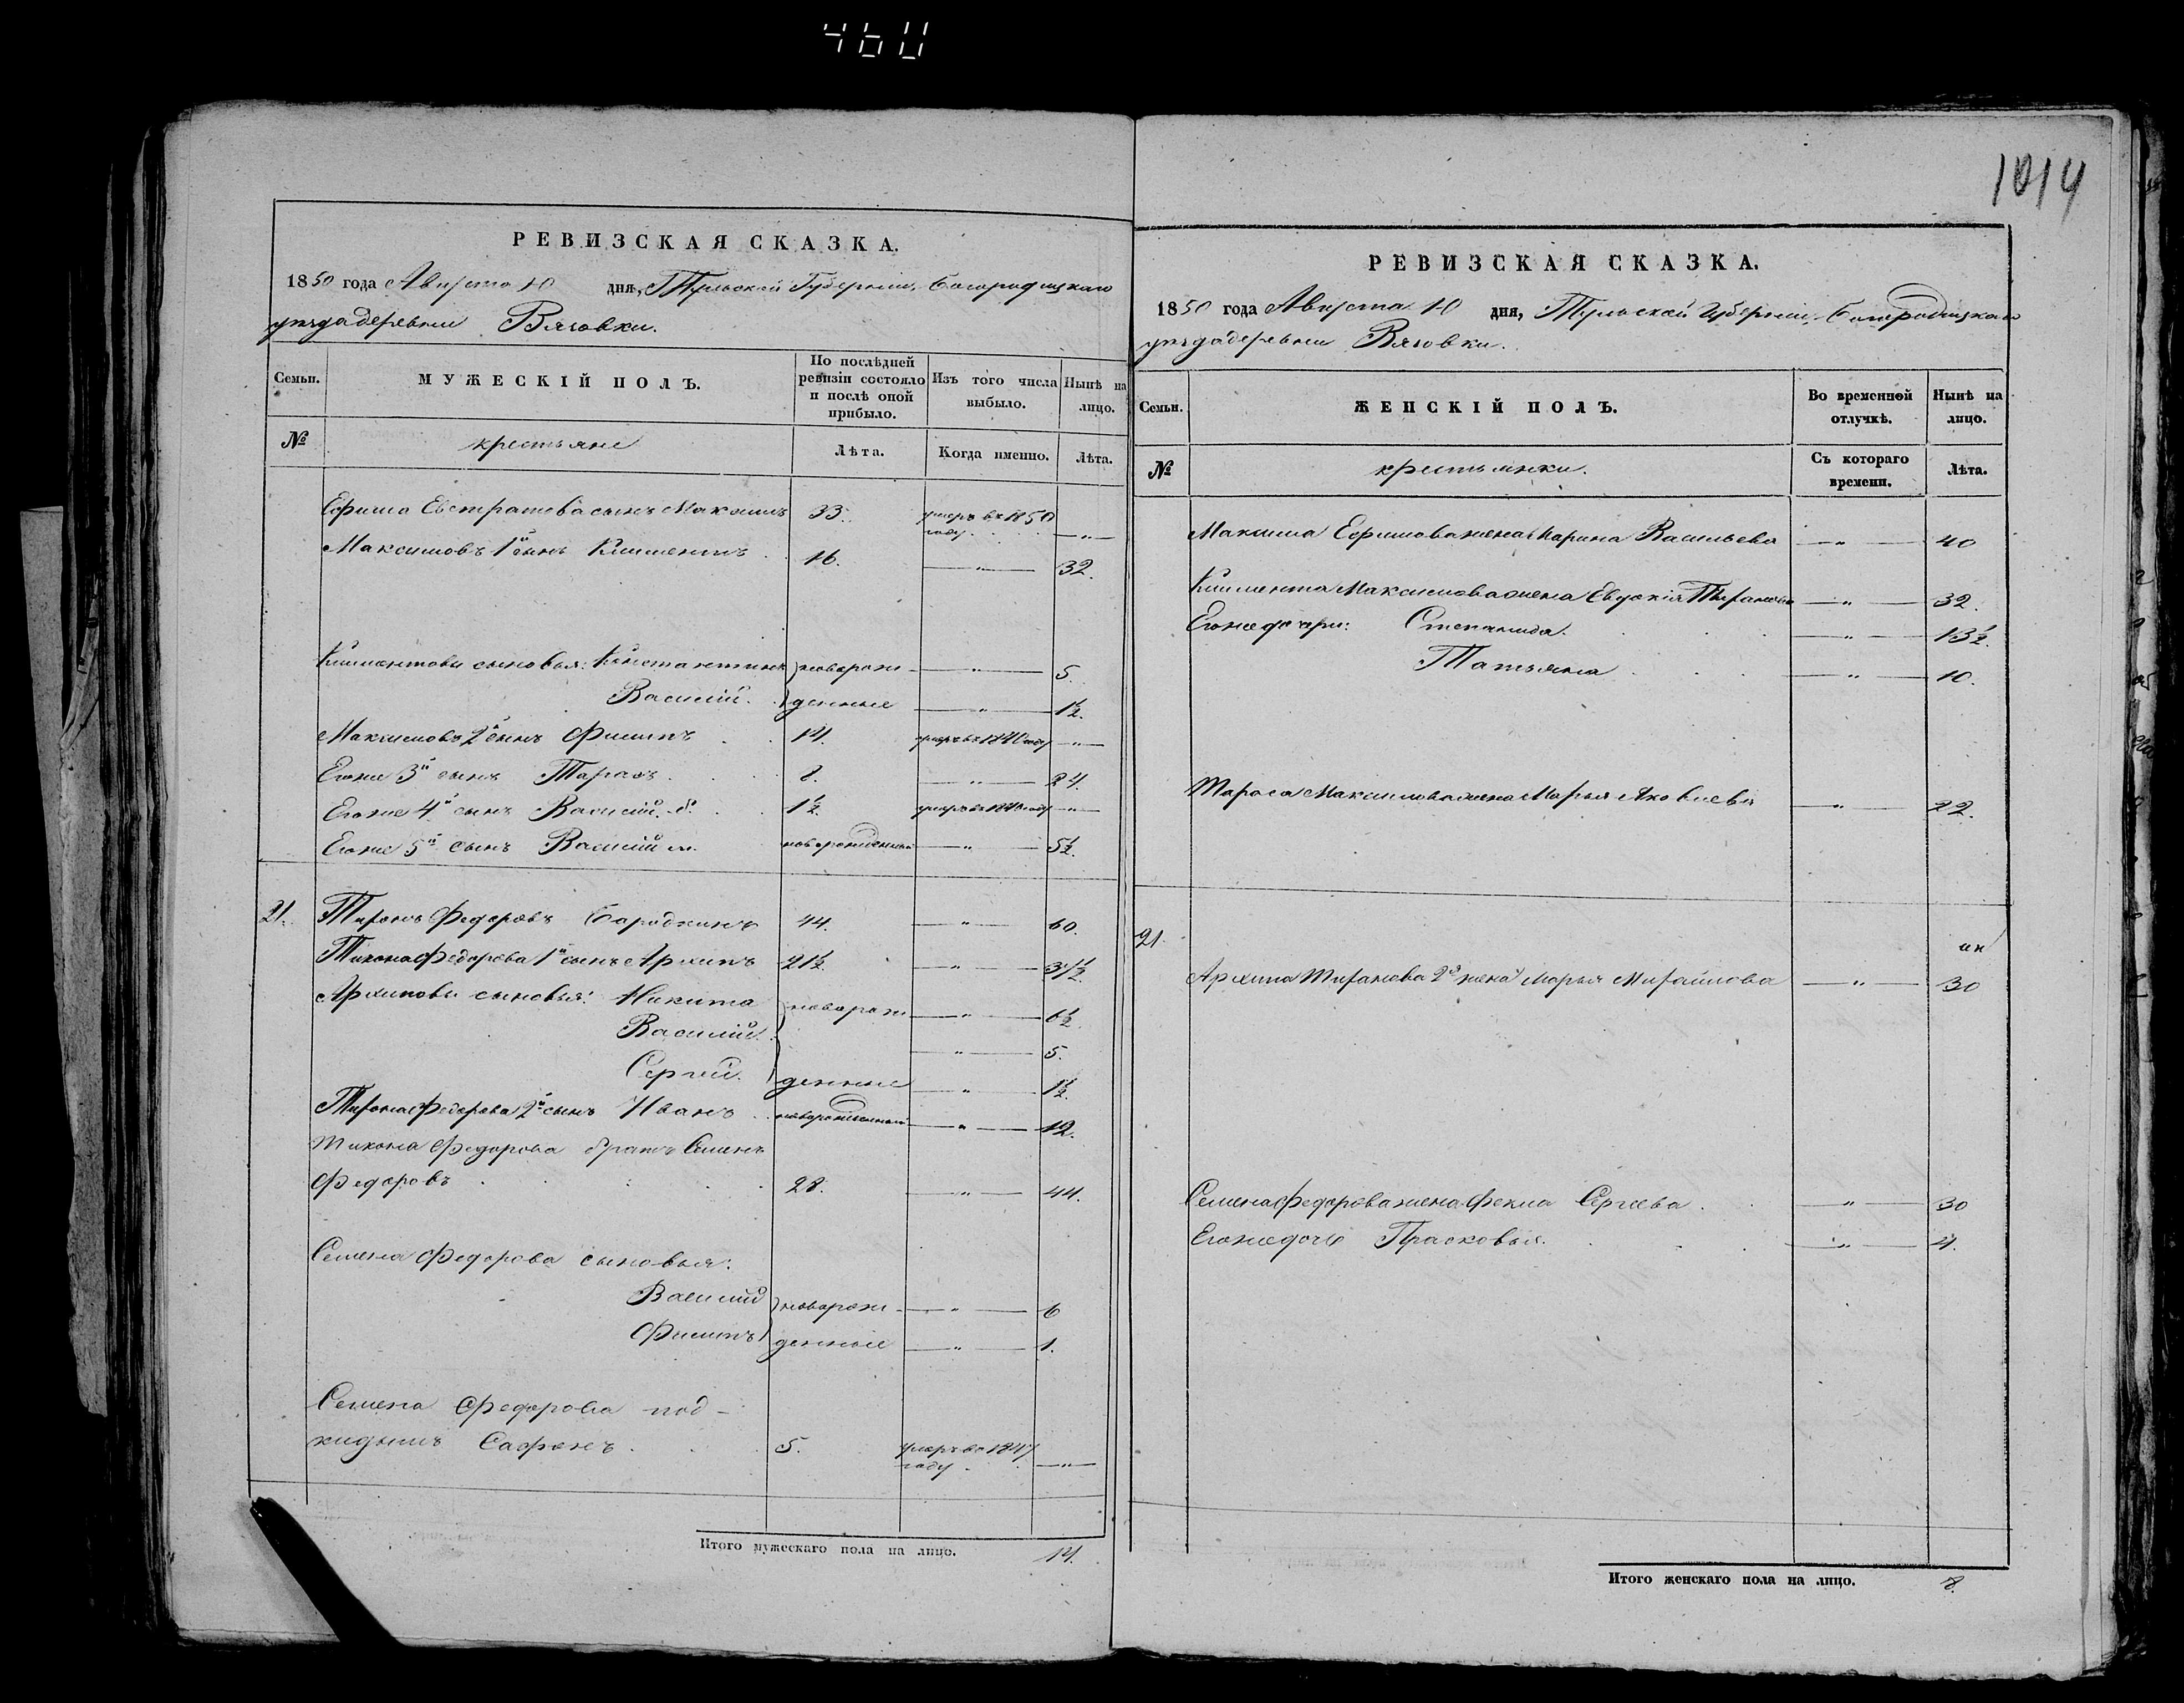 460
1014
РЕВИЗСКАЯ СКАЗКА.
1850 года Августа 10 дня, Тульской Губерніи, Богородицкаго
уѣзда деревни Вязовки.
Семьи. МУЖЕСКІЙ ПОЛЪ. По послѣдней ревизіи состояло и послѣ оной прибыло. Изъ того числа выбыло. Нынѣ на лицо.
№ крестьяне Лѣта. Когда именно. Лѣта.
Ефима Евстратова сынъ Максимъ 33. умеръ въ 1850 году - " -
Максимовъ 1й сынъ Климентъ 16. - " - 32.
Климентовы сыновья: Константинъ новорож - " - 5.
Василій денные - " - 1½.
Максимовъ 2й сынъ Филипъ 14. умеръ въ 1840 году - " -
Егоже 3й сынъ Тарасъ 8. - " - 24.
Егоже 4й сынъ Василій. б. 1½. умеръ въ 1840 году - " -
Егоже 5й сынъ Василій м. новорожденный - " - 5½.
21. Тихонъ Федоровъ Бародкинъ 44. - " - 60.
Тихона Федорова 1й сынъ Архипъ 21½. - " - 37½.
Архиповы сыновья: Никита новорож - " - 6½.
Василій - " - 5.
Сергей. денные - " - 1½.
Тихона Федорова 2й сынъ Иванъ новорожденный - " - 12.
Тихона Федорова братъ Семенъ
Федоровъ 28. - " - 44.
Семена Федорова сыновья:
Василій новорож - " - 6
Филипъ денные - " - 1.
Семена Федорова под-
кидышъ Сафонъ 5. умеръ въ 1847 году - " -
Итого мужескаго пола на лицо. 14.
РЕВИЗСКАЯ СКАЗКА.
1850 года Августа 10 дня, Тульской Губерніи, Богородицкаго
уѣзда деревни Вязовки.
Семьи. ЖЕНСКІЙ ПОЛЪ. Во временной отлучкѣ. Нынѣ на лицо.
№ крестьянки. Съ котораго времени. Лѣта.
Максима Ефимова жена Марина Васильева - " - 40
Климента Максимова жена Евдокія Тиханова - " - 32.
Егоже дочери: Степанида. - " - 13½.
Татьяна - " - 10.
Тараса Максимова жена Марья Яковлева - " - 22.
21.
Архипа Тиханова 2я жена Марья Михайлова - " - 30
Семена Федорова жена Фекла Сергеева - " - 30
Егоже дочь Прасковья. - " - 4.
Итого женскаго пола на лицо. 8.